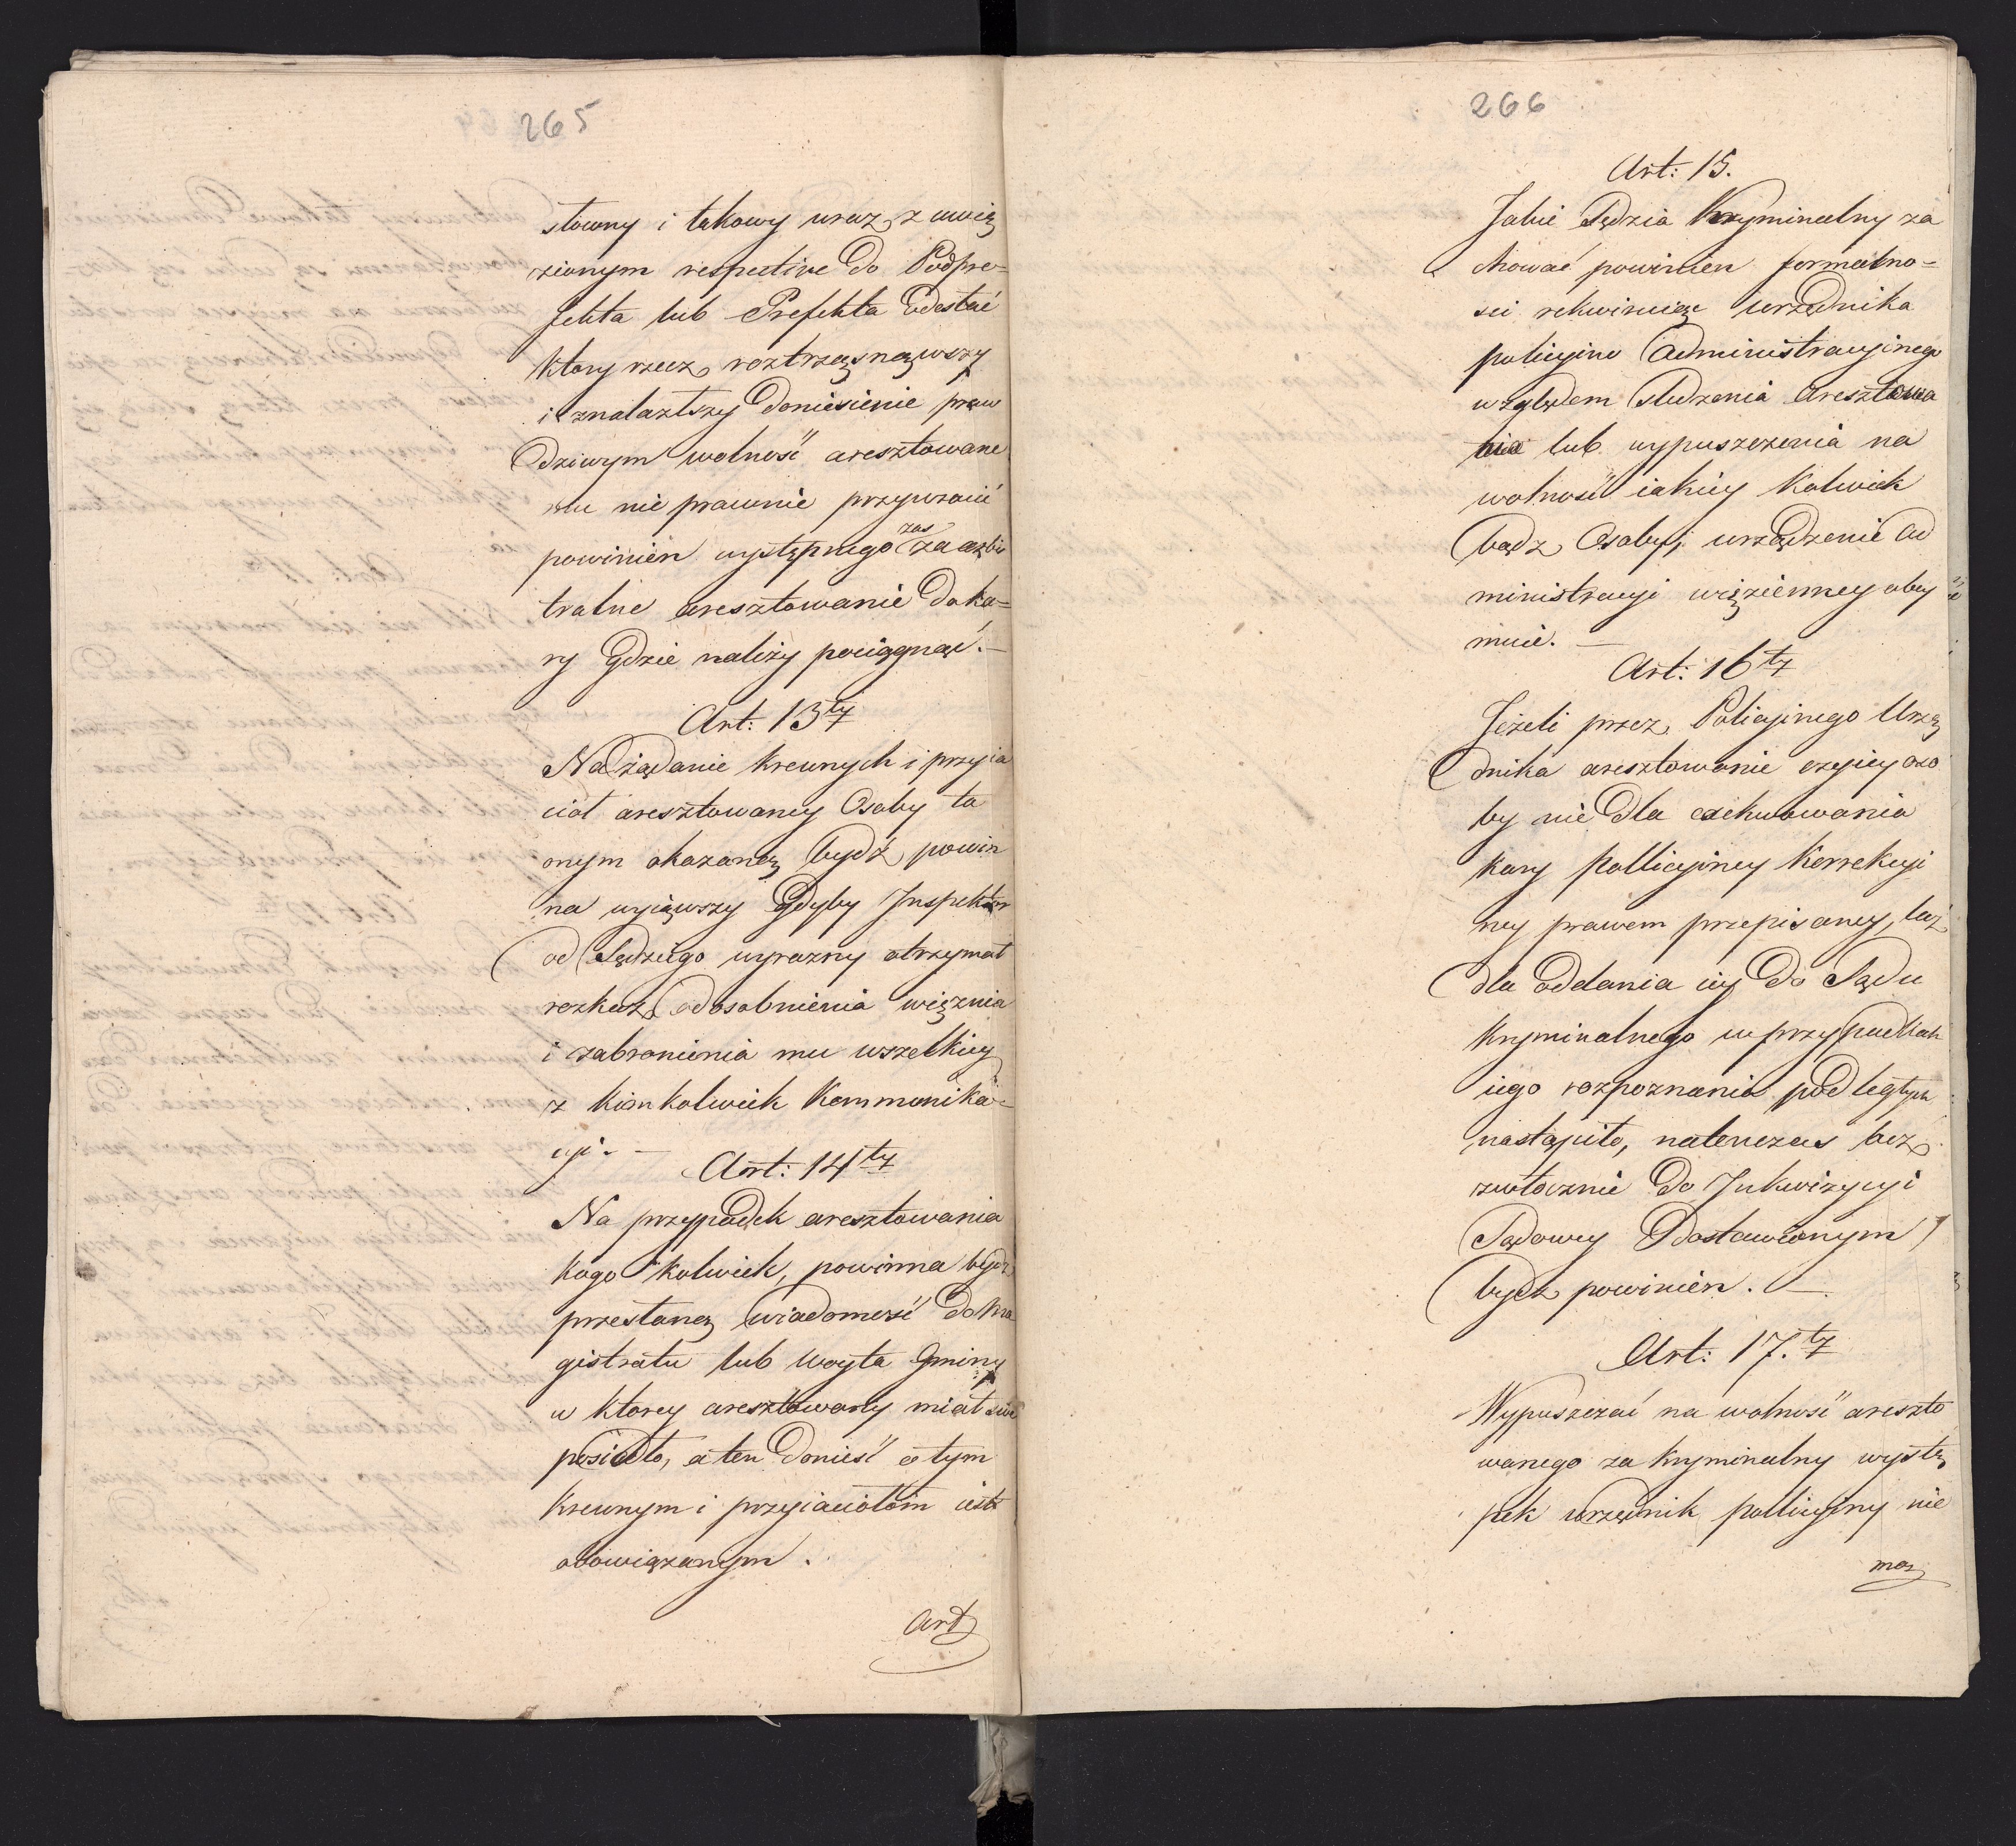 265
słowny i takowy wraz z uwię
zionym respective do Podpre=
fekta lub Prefekta odesłać
ktory rzecz roztrząsnąwszy
i znalazłszy doniesienie praw
dziwym wolność aresztowane
mu nie prawnie przywrócić
powinien występnego zas za arbi
tralne aresztowanie do ka=
ry gdzie należy pociągnąć. —
Art: 13ty
Na żądanie krewnych i przyia
ciół aresztowaney Osoby ta
onym okazaną bydź powin
na wyiąwszy gdyby Inspektor
od Sędziego wyrazny otrzymał
rozkaz odosobnienia więznia
i zabronienia mu wszelkiey
z kimkolwiek Kommunika=
cyi. —
Art: 14ty
Na przypadek aresztowania
kogo kolwiek, powinna bydz
przesłaną wiadomość do Ma
gistratu lub Woyta Gminy
w ktorey aresztowany miał swe
posiadło, a ten donieść o tym
Krewnym i przyiaciołom iest
obowiązanym.
Art
266
Art: 15.
Jakie Sędzia Kryminalny za
chować powinien formalno=
sci rekwiruiąc urzędnika
policyino Administracyinego
względem śledzenia Aresztowa
nia lub wypuszczenia na
wolność iakiey kolwiek
bądz Osoby, urządzenie ad
ministracyi więzienney obey
muie. —
Art: 16ty
Jeżeli przez Policyinego Urzę
dnika aresztowanie czyiey oso
by nie dla exekwowania
kary pollicyiney korrekcyi
ney prawem przepisaney, lecz
dla oddania iey do Sądu
Kryminalnego w przypadkach
iego rozpoznania podległych
nastąpiło, natenczas bez
zwłocznie do Inkwizycyi
Sądowey dostawionym
bydz powinien. —
Art: 17.ty
Wypuszczać na wolność areszto
wanego za kryminalny wystę
pek urzędnik pollicyiny nie
ma